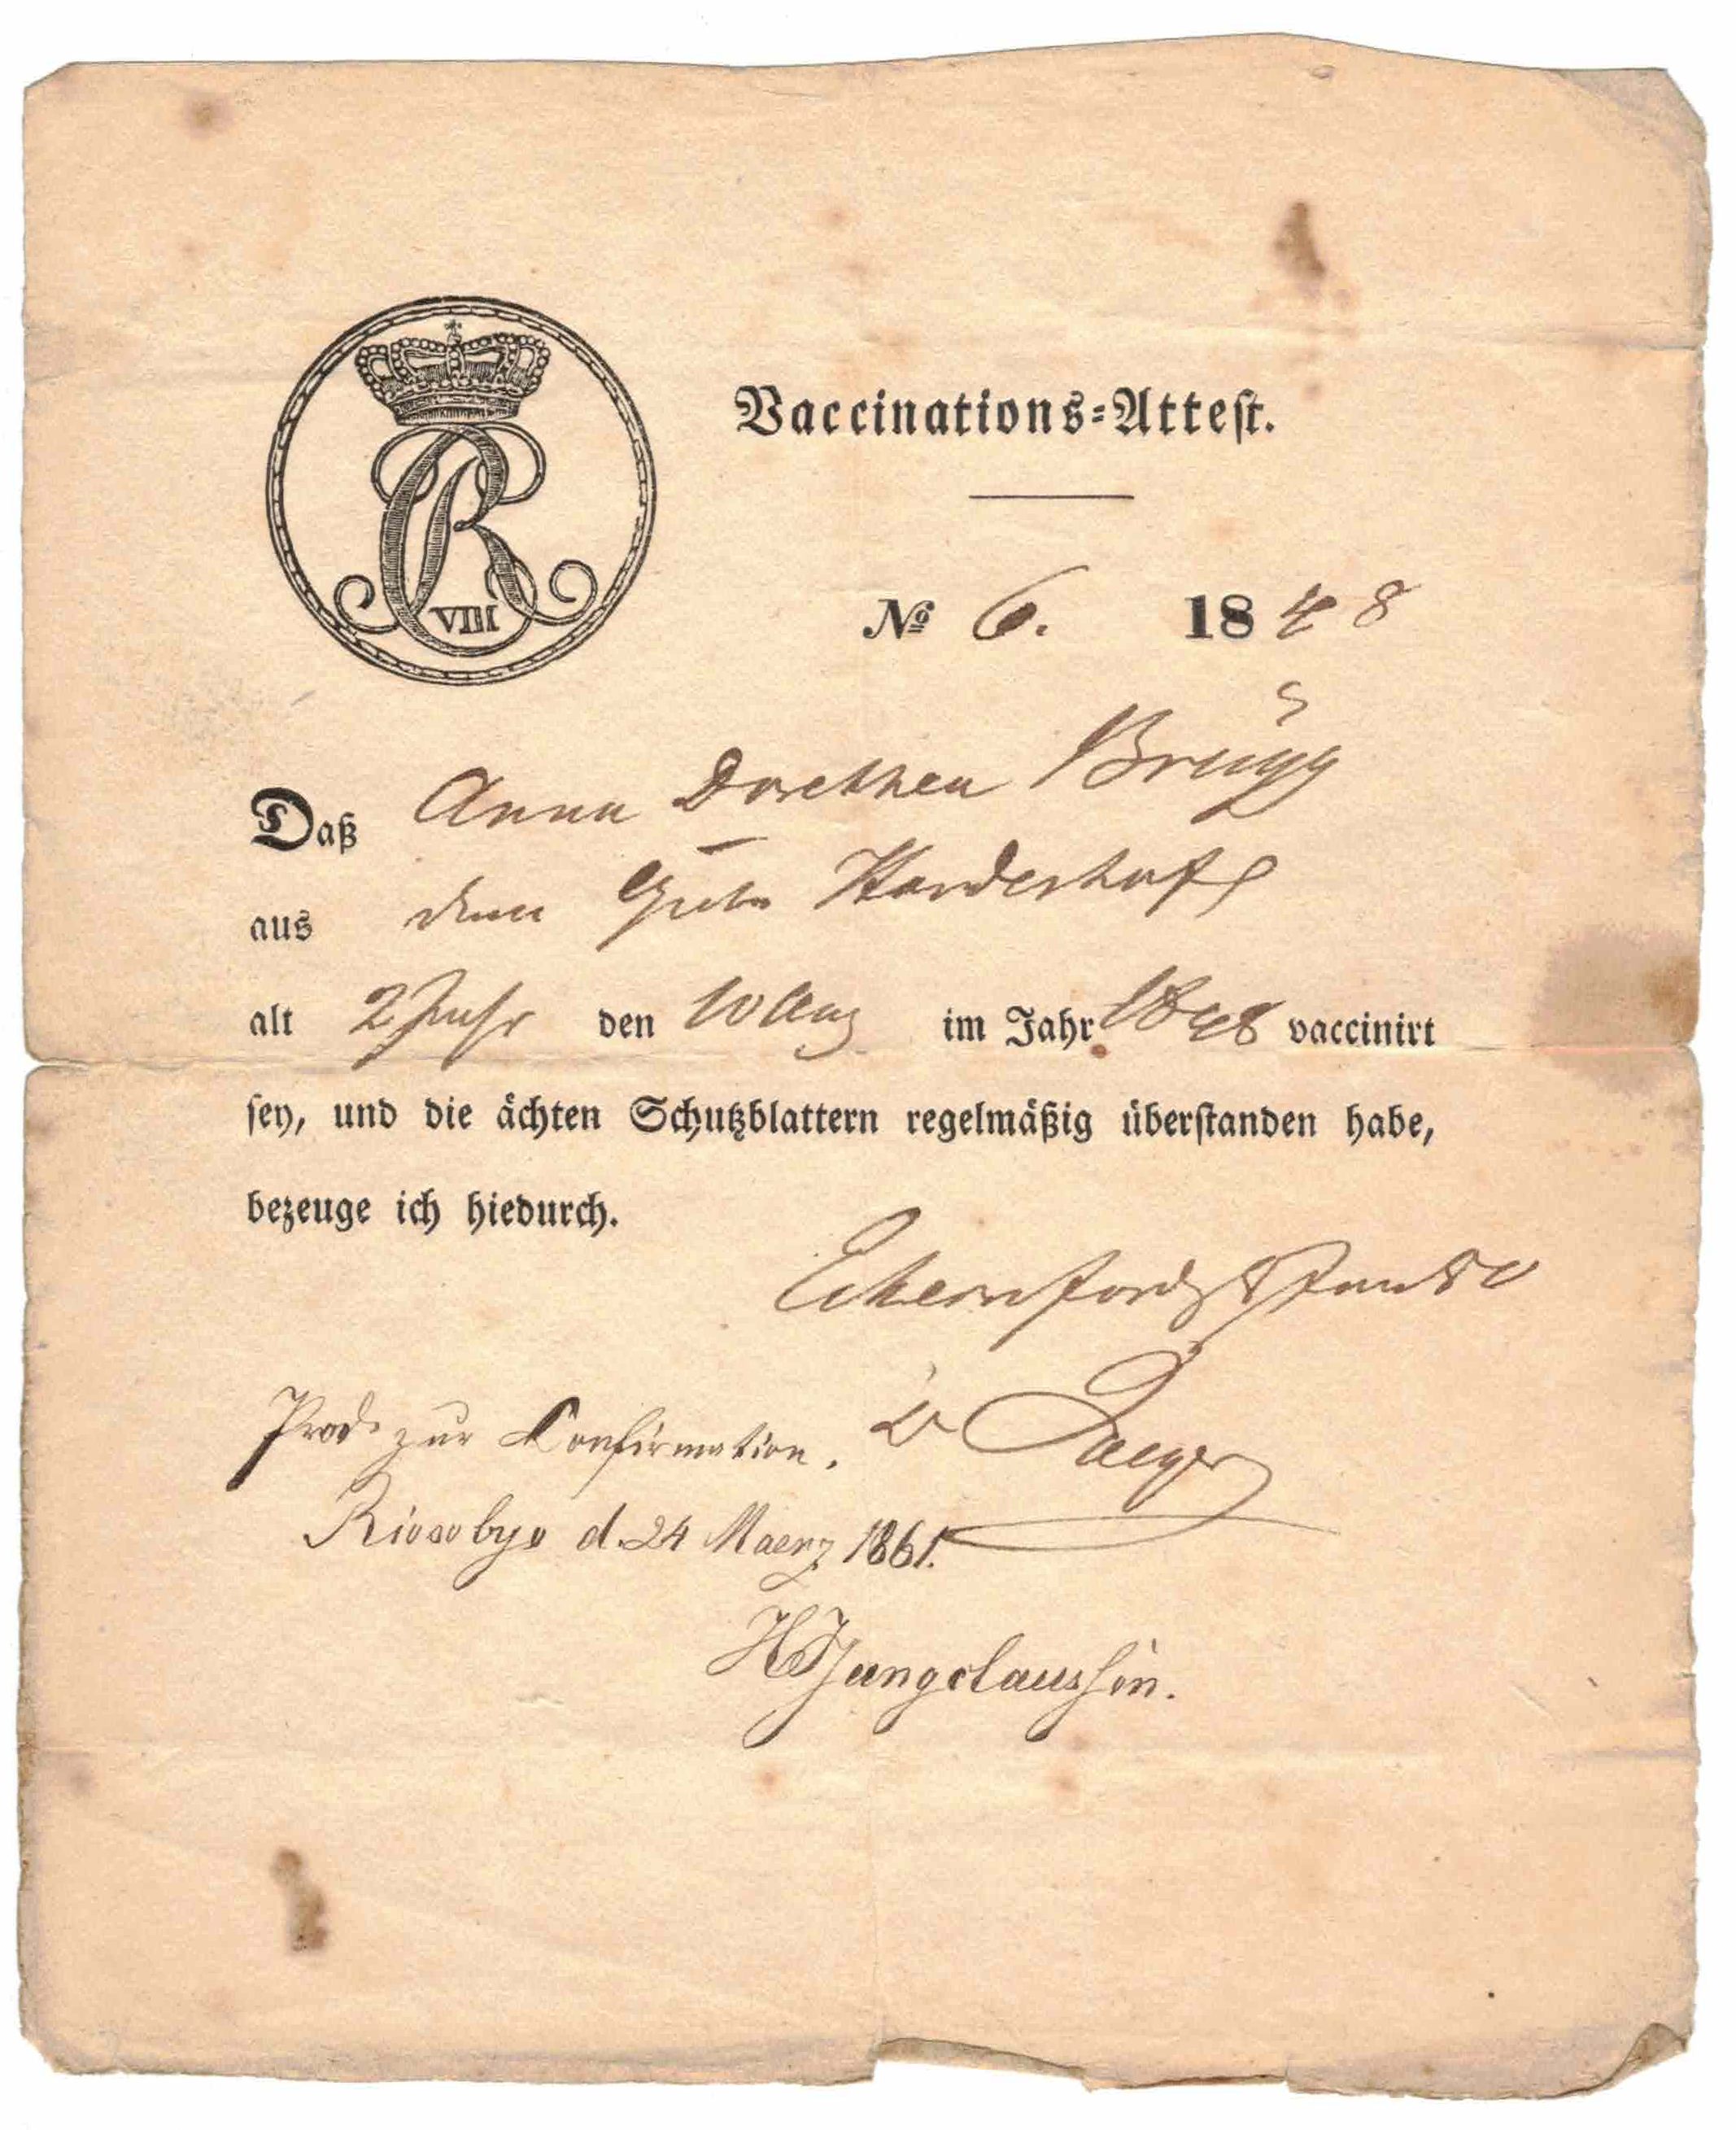 VIII
Vaccinations-Attest.
№ 6. 1848
Daß Anna Dorothea Brügg
aus dem Gute Harderhoff
alt 2 Jahr den 10 Aug im Jahr 1848 vaccinirt
sey, und die ächten Schutzblattern regelmäßig überstanden habe,
bezeuge ich hiedurch.
Eckernförde
Prod. zur Confirmation.
Riesebye d. 24 Maerz 1861.
Jungclaussen.